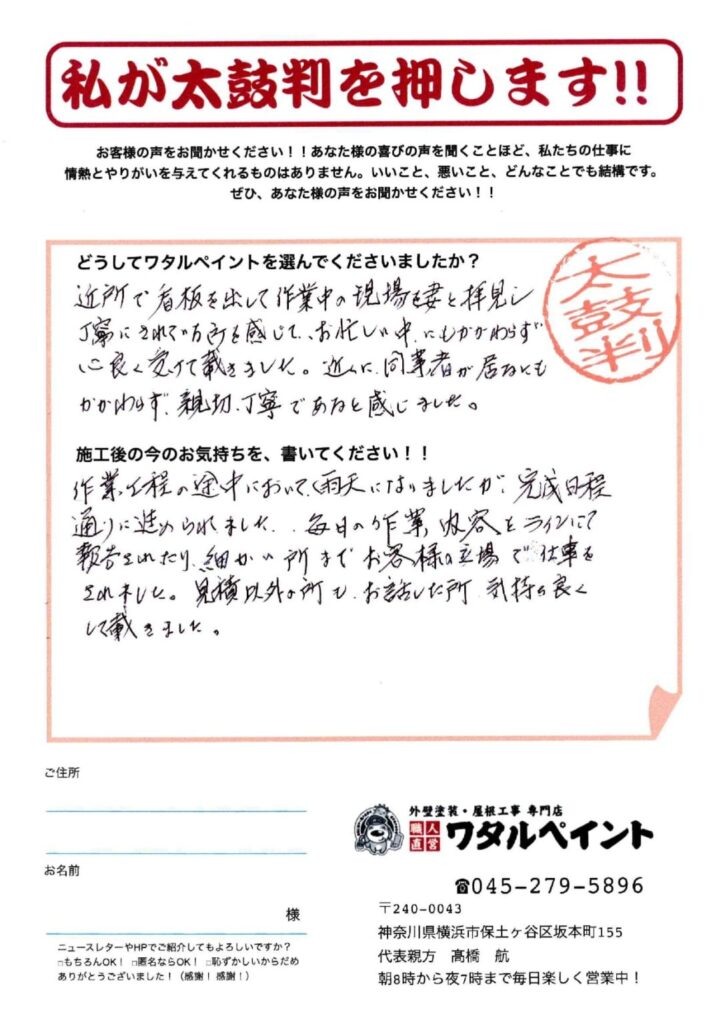 私が太鼓判を押します!!
お客様の声をお聞かせください！！あなた様の喜びの声を聞くことほど、私たちの仕事に
情熱とやりがいを与えてくれるものはありません。いいこと、悪いこと、どんなことでも結構です。
ぜひ、あなた様の声をお聞かせください！！
どうしてワタルペイントを選んでくださいましたか？
太鼓判
近所で看板を出して作業中の現場を妻と拝見し
丁寧にされている所を感じて、お忙しい中にもかかわらず
心良く受けて載きました。近くに同業者が居るにも
かかわらず、親切、丁寧であると感じました。
施工後の今のお気持ちを、書いてください！！
作業工程の途中において、雨天になりましたが、完成日程
通りに進められました。毎日の作業内容をラインにて
報告されたり、細かい所までお客様の立場で仕事を
されました。見積以外の所も、お話した所、気持ち良く
して載きました。
ご住所
外壁塗装・屋根工事 専門店
職人直営 ワタルペイント
お名前
様
☎045-279-5896
〒240-0043
神奈川県横浜市保土ヶ谷区坂本町155
代表親方　髙橋　航
朝8時から夜7時まで毎日楽しく営業中！
ニュースレターやHPでご紹介してもよろしいですか？
□もちろんOK！ □匿名ならOK！ □恥ずかしいからだめ
ありがとうございました！（感謝！感謝！）